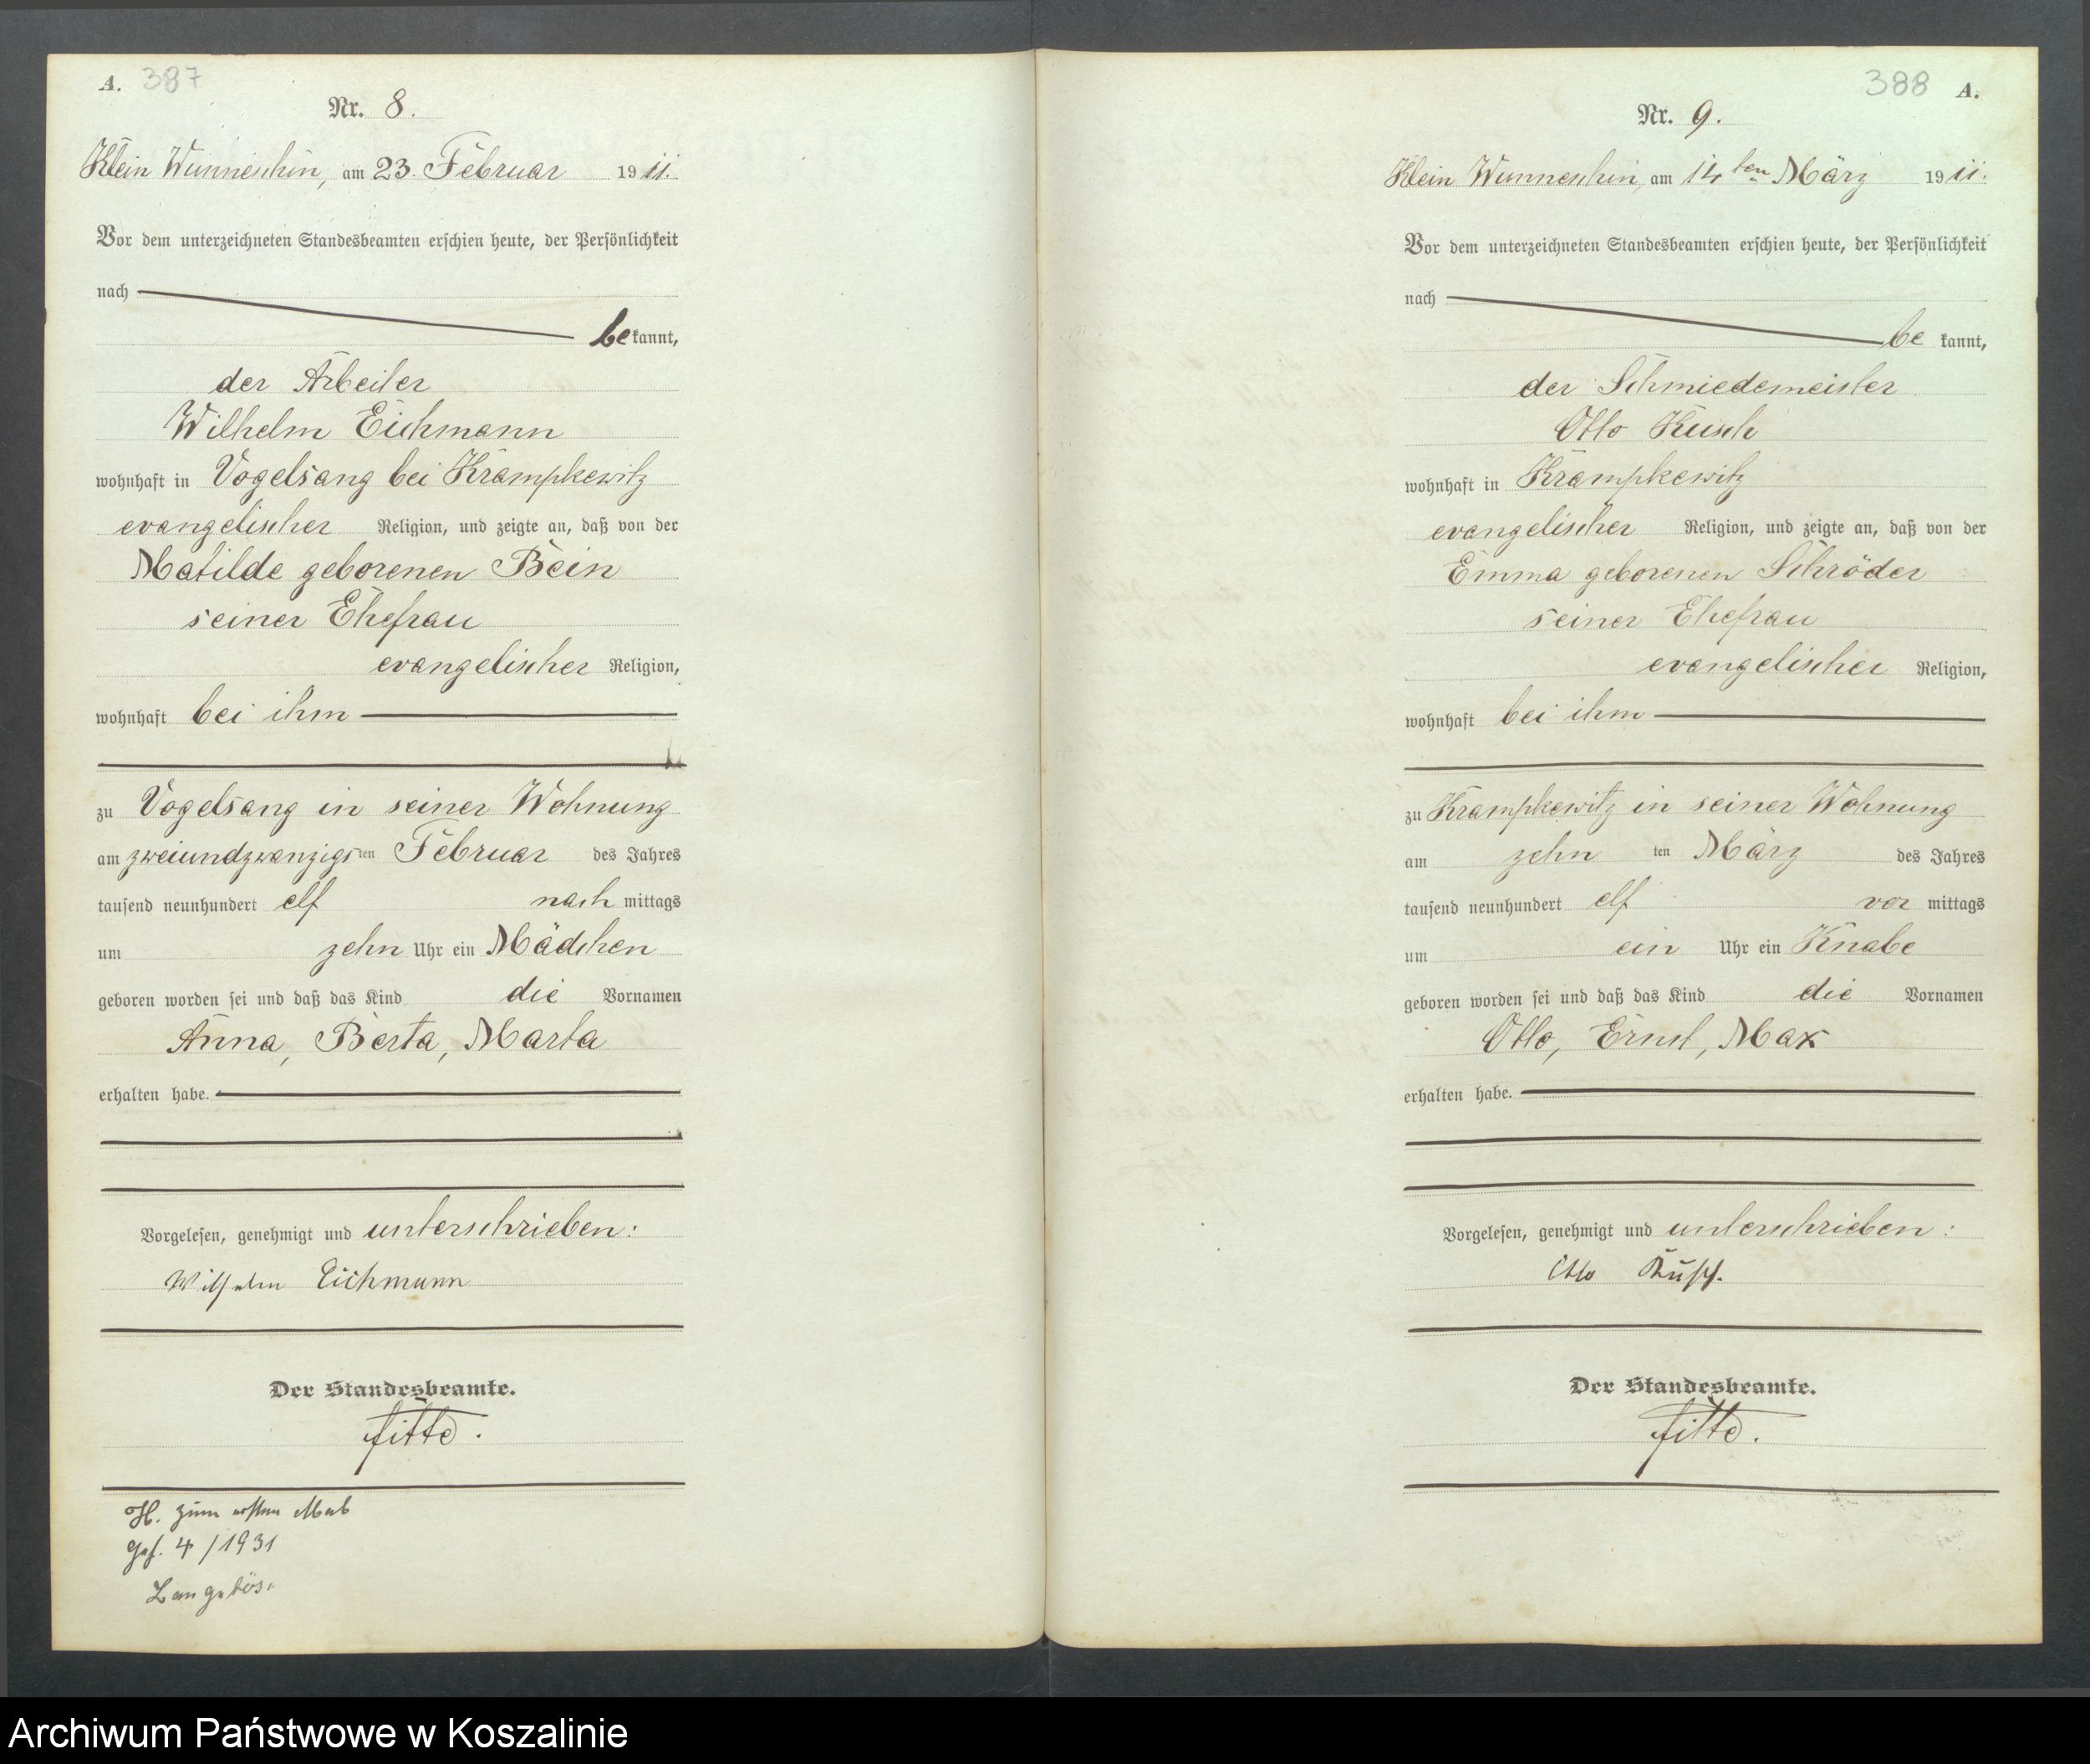 A. 387
Nr. 8.
Klein Wunneschin, am 23. Februar 1911.
Vor dem unterzeichneten Standesbeamten erschien heute, der Persönlichkeit
nach
bekannt,
der Arbeiter
Wilhelm Eichmann
wohnhaft in Vogelsang bei Krampkewitz
evangelischer Religion, und zeigte an, daß von der
Matilde geborenen Bein
seiner Ehefrau
evangelischer Religion,
wohnhaft bei ihm
zu Vogelsang in seiner Wohnung
am zweiundzwanzigsten Februar des Jahres
tausend neunhundert elf nachmittags
um zehn Uhr ein Mädchen
geboren worden sei und daß das Kind die Vornamen
Anna, Berta, Marta
erhalten habe.
Vorgelesen, genehmigt und unterschrieben:
Wilhelm Eichmann
Der Standesbeamte.
Fitte.
H. zum ersten Mal
Gef. 4/1931
Langebös.
388 A.
Nr. 9.
Klein Wunneschin, am 14ten März 1911.
Vor dem unterzeichneten Standesbeamten erschien heute, der Persönlichkeit
nach
bekannt,
der Schmiedemeister
Otto Kusch
wohnhaft in Krampkewitz
evangelischer Religion, und zeigte an, daß von der
Emma geborenen Schröder
seiner Ehefrau
evangelischer Religion,
wohnhaft bei ihm
zu Krampkewitz in seiner Wohnung
am zehn ten März des Jahres
tausend neunhundert elf vormittags
um ein Uhr ein Knabe
geboren worden sei und daß das Kind die Vornamen
Otto, Ernst, Max
erhalten habe.
Vorgelesen, genehmigt und unterschrieben:
Otto Kusch.
Der Standesbeamte.
Fitte.
Archiwum Państwowe w Koszalinie